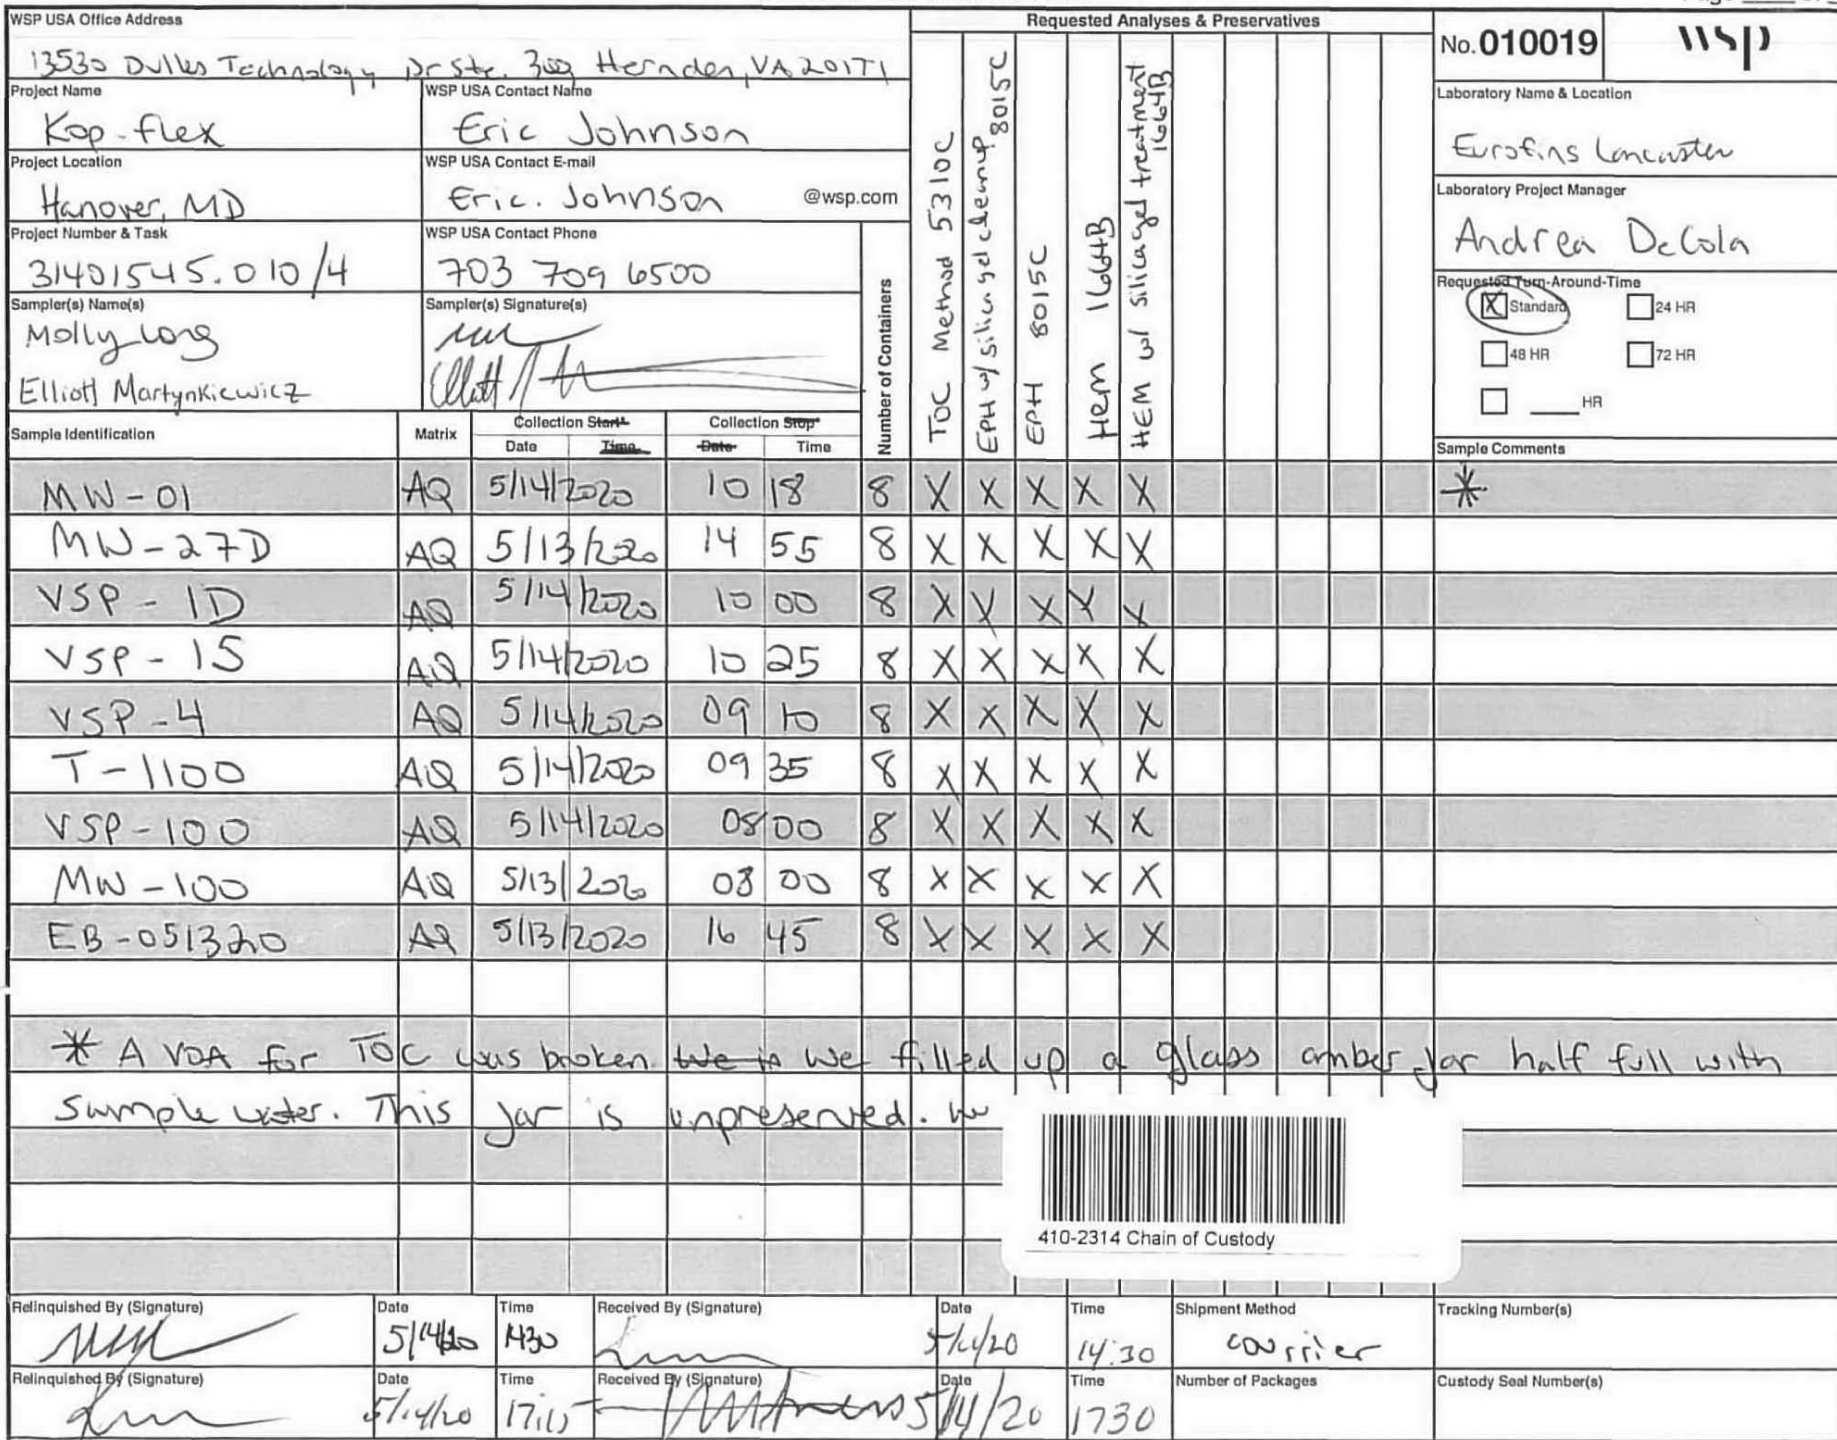 WSP USA Office Address
13530 Dulles Technology Dr Ste. 300 Hernden, VA 20171
Project Name
Kop-flex
WSP USA Contact Name
Eric Johnson
Project Location
Hanover, MD
WSP USA Contact E-mail
Eric. Johnson @wsp.com
Project Number & Task
31401545.010/4
WSP USA Contact Phone
703 709 6500
Sampler(s) Name(s)
Molly Long
Elliott Martynkiewicz
Sampler(s) Signature(s)
Requested Analyses & Preservatives
Number of Containers
TOC Method 5310C
EPH w/ silica gel cleanup 8015C
EPH 8015C
Hem 1664B
HEM w/ silica gel treatment 1664B
No. 010019
wsp
Laboratory Name & Location
Eurofins Lancaster
Laboratory Project Manager
Andrea DeCola
Requested Turn-Around-Time
X Standard 24 HR
48 HR 72 HR
____ HR
Sample Identification Matrix Collection Start* Collection Stop*
Date Time Date Time
Sample Comments
MW-01 AQ 5/14/2020 10 18 8 X X X X X *
MW-27D AQ 5/13/2020 14 55 8 X X X X X
VSP-1D AQ 5/14/2020 10 00 8 X X X X X
VSP-1S AQ 5/14/2020 10 25 8 X X X X X
VSP-4 AQ 5/14/2020 09 10 8 X X X X X
T-1100 AQ 5/14/2020 09 35 8 X X X X X
VSP-100 AQ 5/14/2020 08 00 8 X X X X X
MW-100 AQ 5/13/2020 08 00 8 X X X X X
EB-051320 AQ 5/13/2020 16 45 8 X X X X X
* A VOA for TOC was broken. We is we filled up a glass amber jar half full with
sample water. This jar is unpreserved.
410-2314 Chain of Custody
Relinquished By (Signature) Date 5/14/20 Time 1430 Received By (Signature) Date 5/14/20 Time 14:30 Shipment Method courrier Tracking Number(s)
Relinquished By (Signature) Date 5/14/20 Time 17:15 Received By (Signature) Date 5/14/20 Time 1730 Number of Packages Custody Seal Number(s)